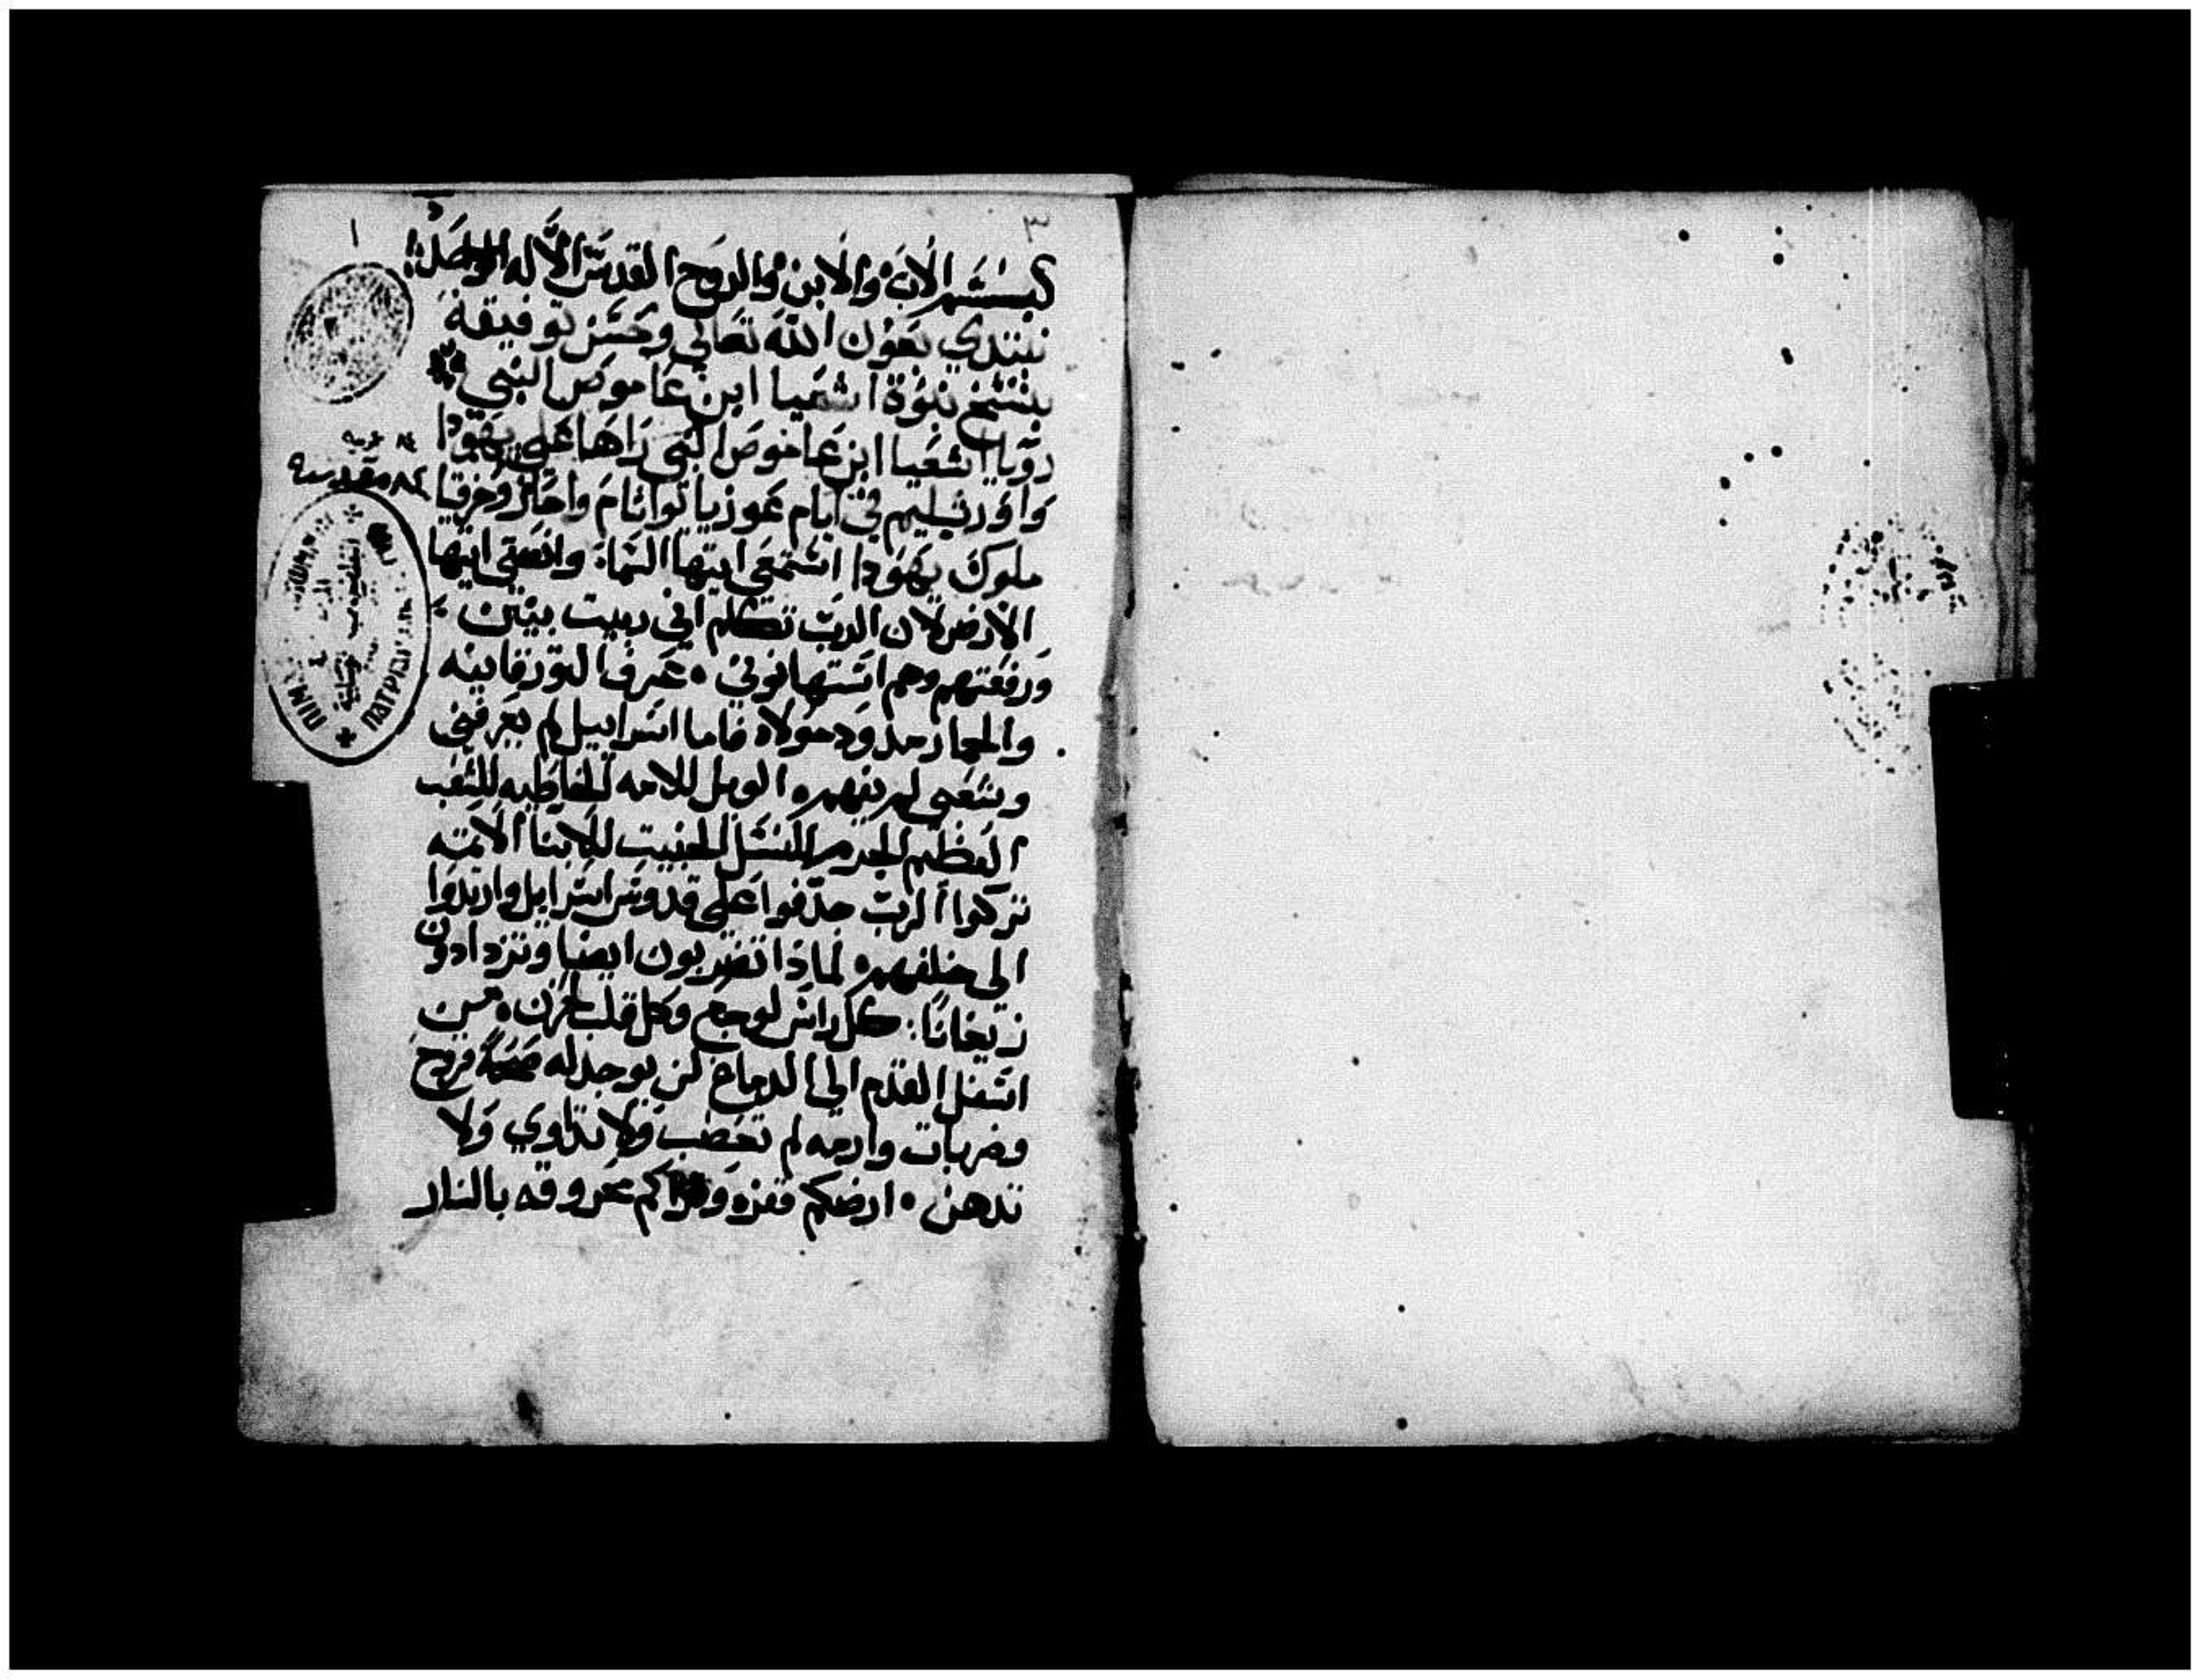 ٣
١
بسم الاب والابن والروح القدس الاله الواحد
نبتدي بعون الله تعالي وحسن توفيقه
بنسخ نبوة اشعيا ابن عاموص النبي
رويا اشعيا ابن عاموص النبي راها علي يهودا
واورشليم في ايام عوزيا تواثام واحاز وحزقيا
ملوك يهودا استمعي ايتها السما وانصتي ايتها
الارض لان الرب تكلم اني ربيت بنين
ورفعتهم وهم استهانوني ٠ عرف الثور قانيه
والحمار مذود مولاه فاما اسراييل لم يعرفني
وشعبي لم يفهم ٠ الويل للامه الخاطيه للشعب
العظيم الجرم للنسل الخبيث للابنا الاثمه
تركوا الرب جدفوا علي قدوس اسراييل وارتدوا
الي خلفهم ٠ لماذا تضربون ايضا وتزدادون
زيغانا : كل راس لوجع وكل قلب لحزن ٠ من
اسفل القدم الي الدماغ لن يوجد له صحة قروح
وضربات وارمه لم تعضب ولا تداوي ولا
تدهن ٠ ارضكم قفره وقراكم محروقه بالنار
١٤ عربيه
٨٤ مقدسه